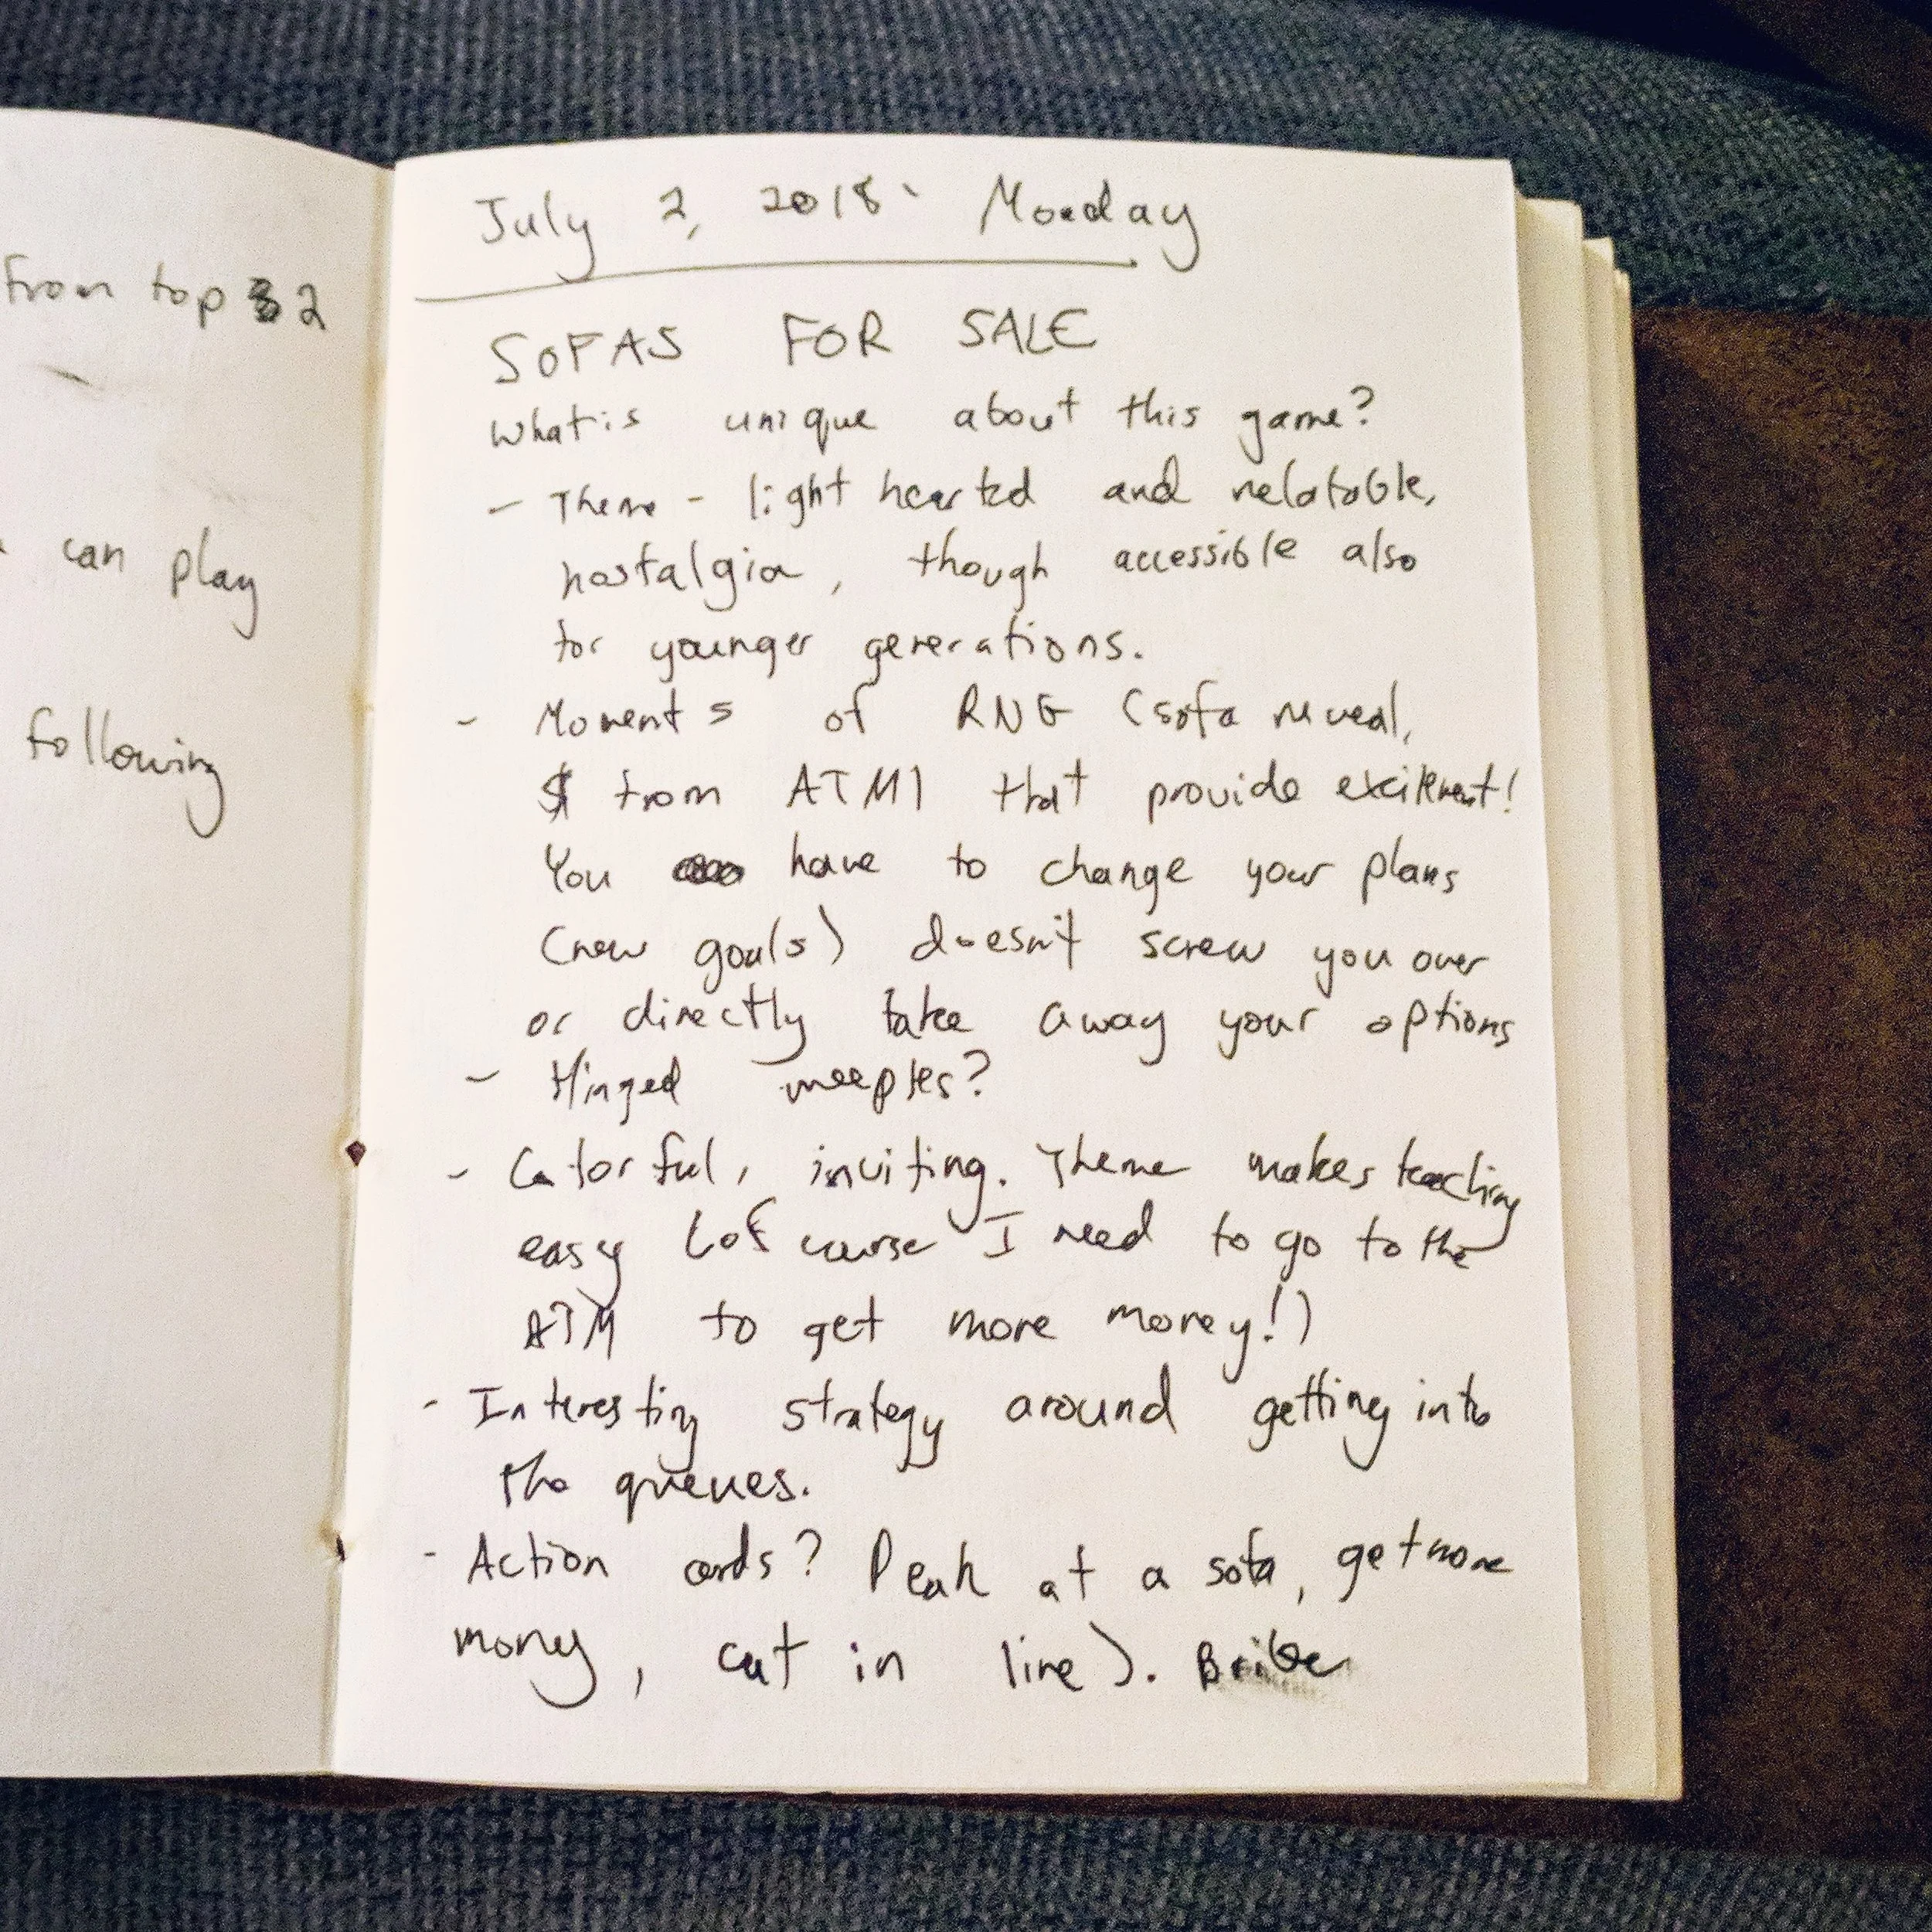 from top 2
can play
following
July 2, 2018 Monday
SOFAS FOR SALE
What is unique about this game?
- Theme - light hearted and relatable,
nostalgia, though accessible also
for younger generations.
- Moments of RNG (sofa reveal,
$ from ATM) that provide excitement!
You have to change your plans
(new goals) doesn't screw you over
or directly take away your options
- Hinged meeples?
- Colorful, inviting. Theme makes teaching
easy (of course I need to go to the
ATM to get more money!)
- Interesting strategy around getting into
the queues.
- Action cards? Peak at a sofa, get more
money, cut in line).